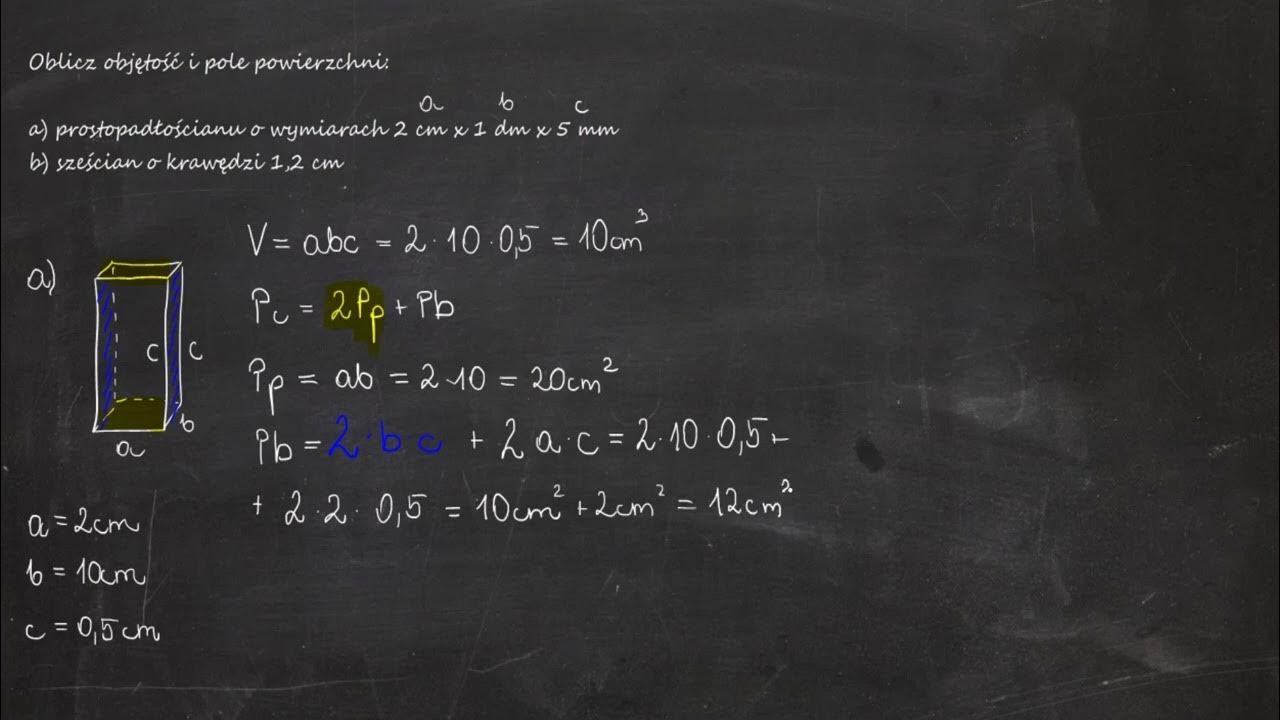 Oblicz objętość i pole powierzchni:
a b c
a) prostopadłościanu o wymiarach 2 cm x 1 dm x 5 mm
b) sześcian o krawędzi 1,2 cm
V = abc = 2 · 10 · 0,5 = 10cm³
a)
Pc = 2Pp + Pb
c c
Pp = ab = 2 · 10 = 20cm²
b
a
Pb = 2 · b · c + 2 a · c = 2 · 10 · 0,5 +
+ 2 · 2 · 0,5 = 10cm² + 2cm² = 12cm²
a = 2cm
b = 10cm
c = 0,5cm